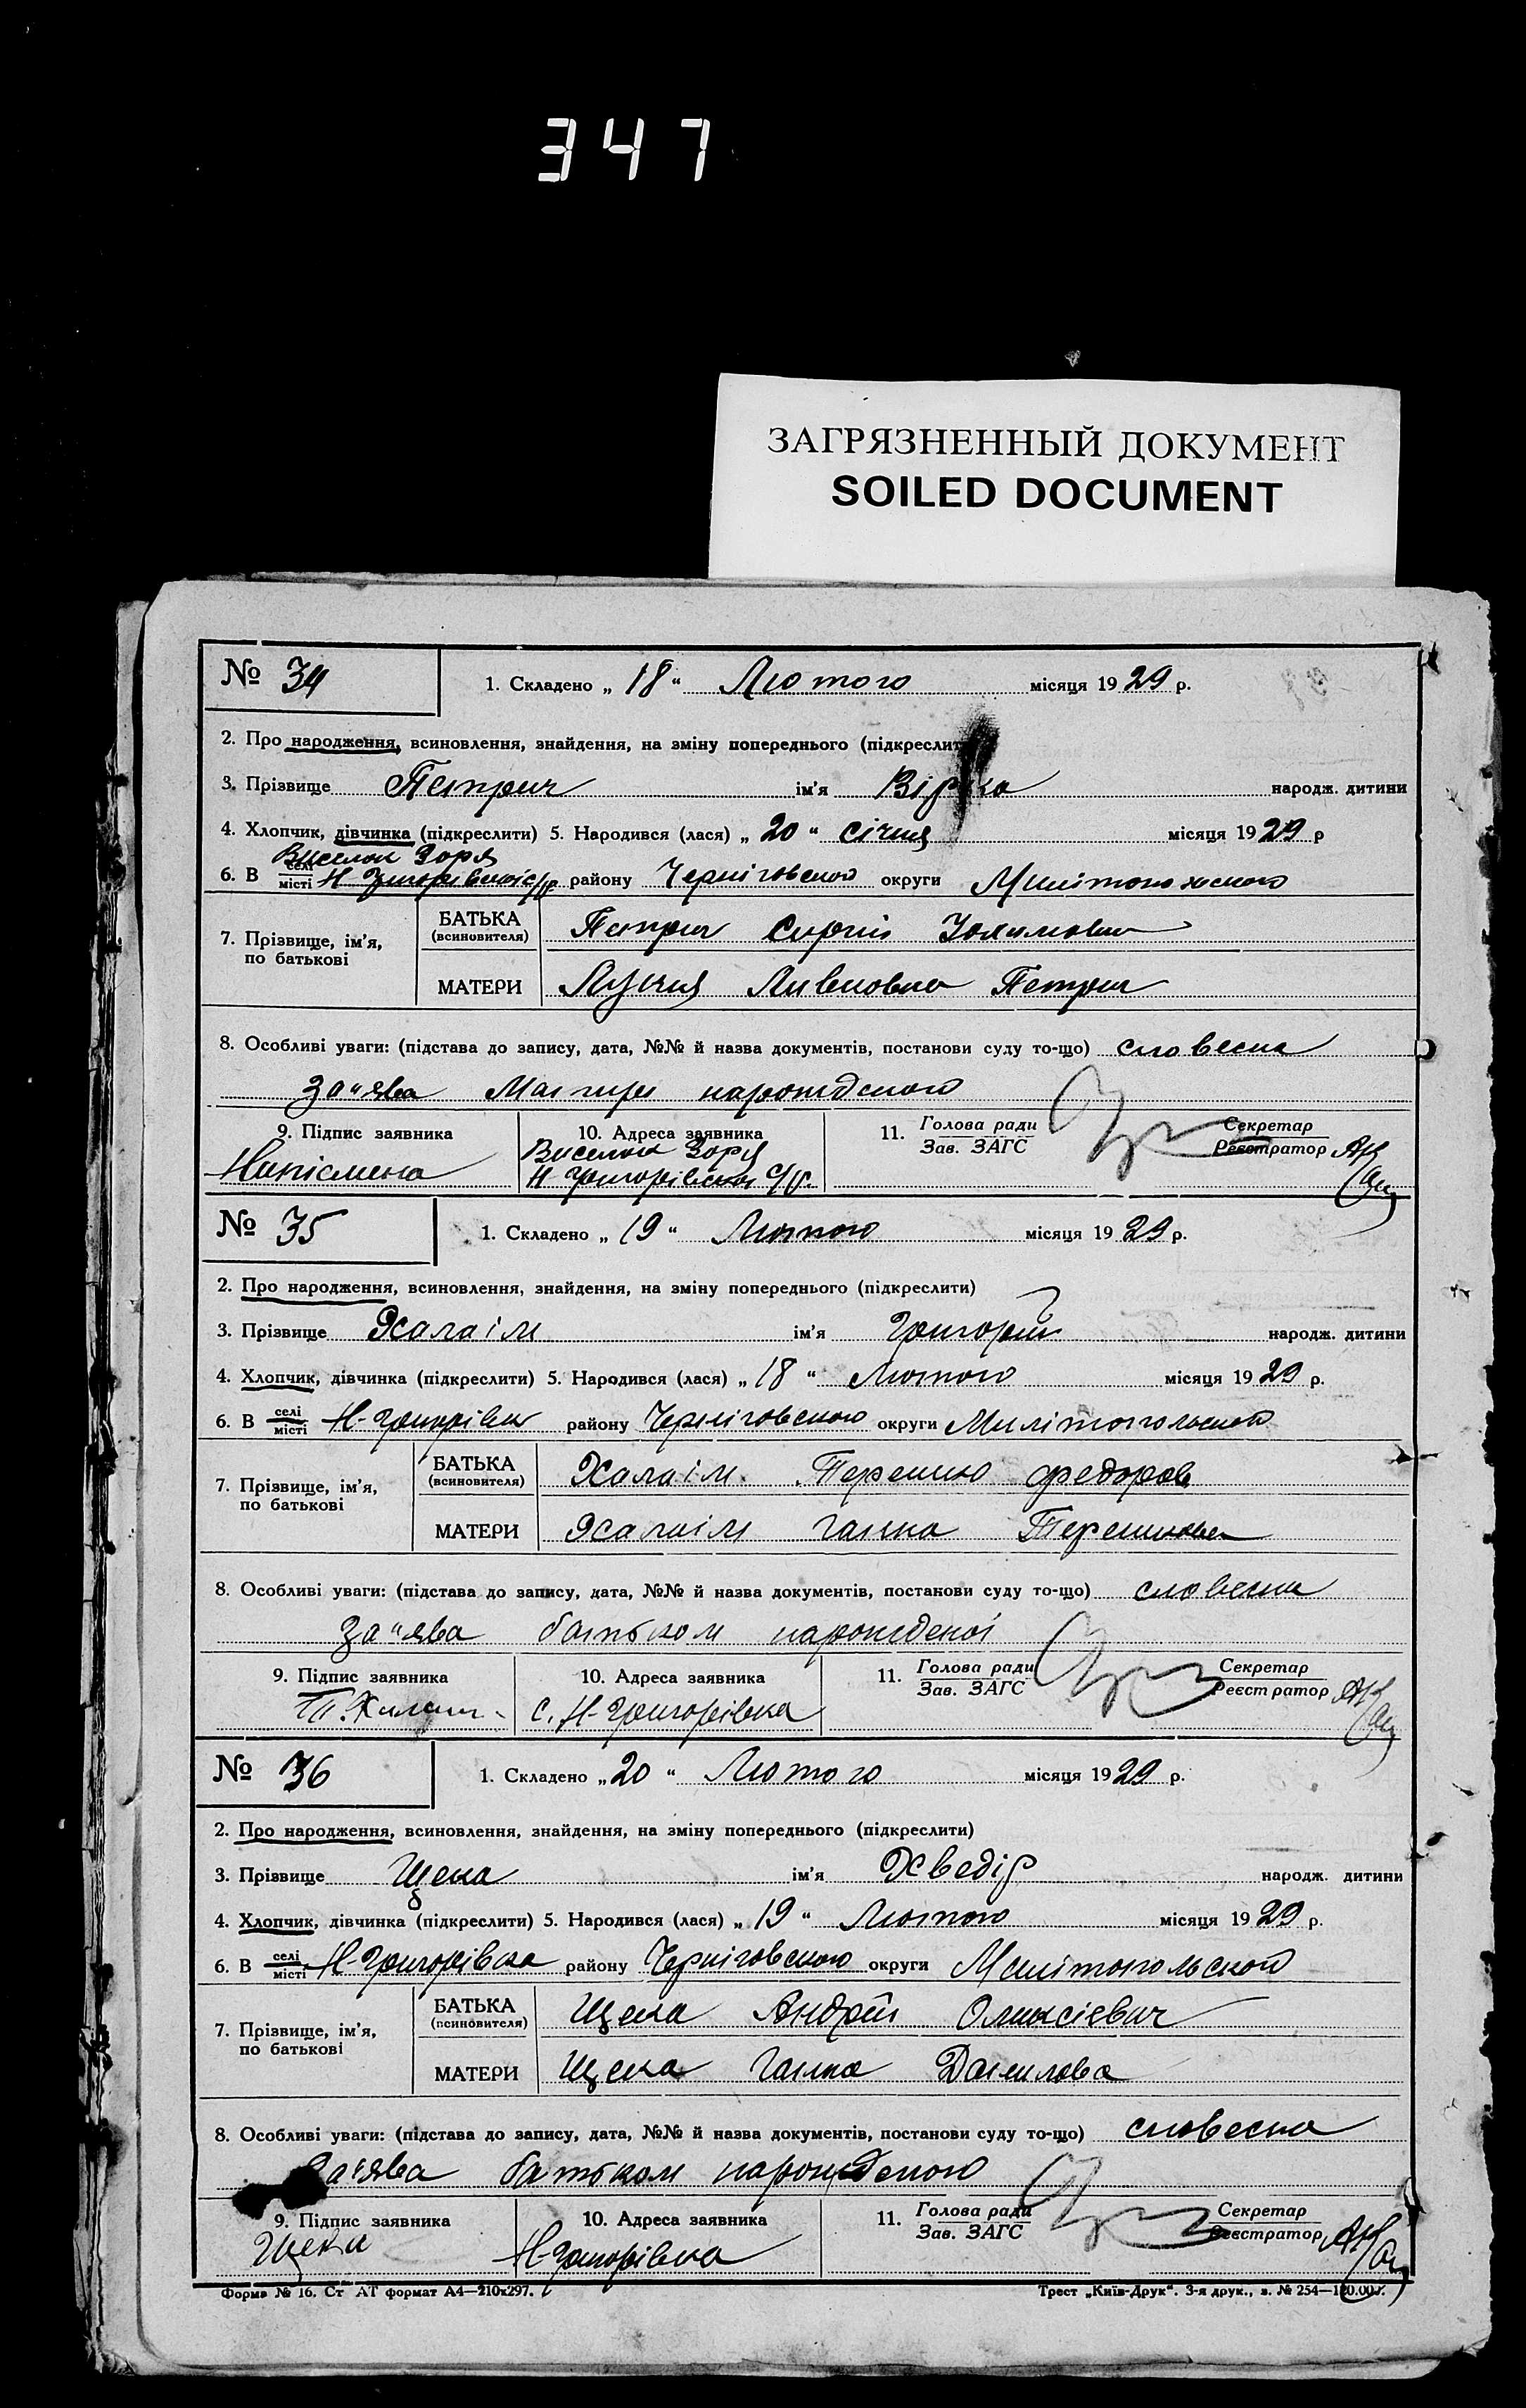 347
ЗАГРЯЗНЕННЫЙ ДОКУМЕНТ
SOILED DOCUMENT
№ 34 1. Складено „ 18 “ Лютого місяця 1929 р.
2. Про народження, всиновлення, знайдення, на зміну попереднього (підкреслит
3. Прізвище Петрич ім'я Вірка народж. дитини
4. Хлопчик, дівчинка (підкреслити) 5. Народився (лася) „ 20 “ січня місяця 1929 р
Виселок Зоря
6. В селі місті Н Григорівскої с/р. району Черніговского округи Милітопольского
7. Прізвище, ім'я, по батькові
БАТЬКА (всиновителя) Петрич Сиргій
МАТЕРИ Петрич
8. Особливі уваги: (підстава до запису, дата, №№ й назва документів, постанови суду то-що) словесна
за"ява Матири нарожденого
9. Підпис заявника 10. Адреса заявника 11. Голова ради Зав. ЗАГС Секретар Реєстратор
Виселок Зоря
Нипісмена Н-Григорівскої с/р.
№ 35 1. Складено „ 19 “ Лютого місяця 1929 р.
2. Про народження, всиновлення, знайдення, на зміну попереднього (підкреслити)
3. Прізвище Халаім ім'я Григорій народж. дитини
4. Хлопчик, дівчинка (підкреслити) 5. Народився (лася) „ 18 “ Лютого місяця 1929 р.
6. В селі місті Н-Григорівка району Черніговского округи Милітопольской
7. Прізвище, ім'я, по батькові
БАТЬКА (всиновителя) Халаім Терешко Федоров
МАТЕРИ Халаім Ганна
8. Особливі уваги: (підстава до запису, дата, №№ й назва документів, постанови суду то-що) словесна
за"ява батьком нарожденоі
9. Підпис заявника 10. Адреса заявника 11. Голова ради Зав. ЗАГС Секретар Реєстратор
с. Н-Григорівка
№ 36 1. Складено „ 20 “ Лютого місяця 1929 р.
2. Про народження, всиновлення, знайдення, на зміну попереднього (підкреслити)
3. Прізвище Щека ім'я Хведір народж. дитини
4. Хлопчик, дівчинка (підкреслити) 5. Народився (лася) „ 19 “ Лютого місяця 1929 р.
6. В селі місті Н-Григорівка району Черніговского округи Милітопольской
7. Прізвище, ім'я, по батькові
БАТЬКА (всиновителя) Щека Андрій Оликсієвич
МАТЕРИ Щека Ганна Данилова
8. Особливі уваги: (підстава до запису, дата, №№ й назва документів, постанови суду то-що) словесна
за"ява батьком нарожденого
9. Підпис заявника 10. Адреса заявника 11. Голова ради Зав. ЗАГС Секретар Реєстратор
Щека Н-Григорівка
Форма № 16. Ст АТ формат А4—210x297. Трест „Київ-Друк“. 3-я друк., з. № 254—120.000.